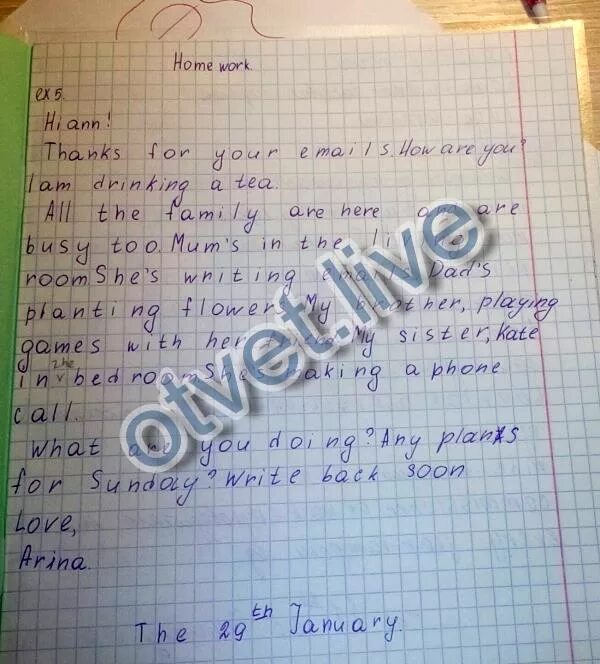 Home work.
ex 5.
Hi ann!
Thanks for your emails. How are you?
I am drinking a tea.
All the family are here and are
busy too. Mum's in the living
room She's writing emails Dad's
planting flowers My brother, playing
games with her friend My sister, Kate
in the bedroom She's making a phone
call.
What are you doing? Any plans
for Sunday? Write back soon
Love,
Arina.
The 29th January.
otvet.live